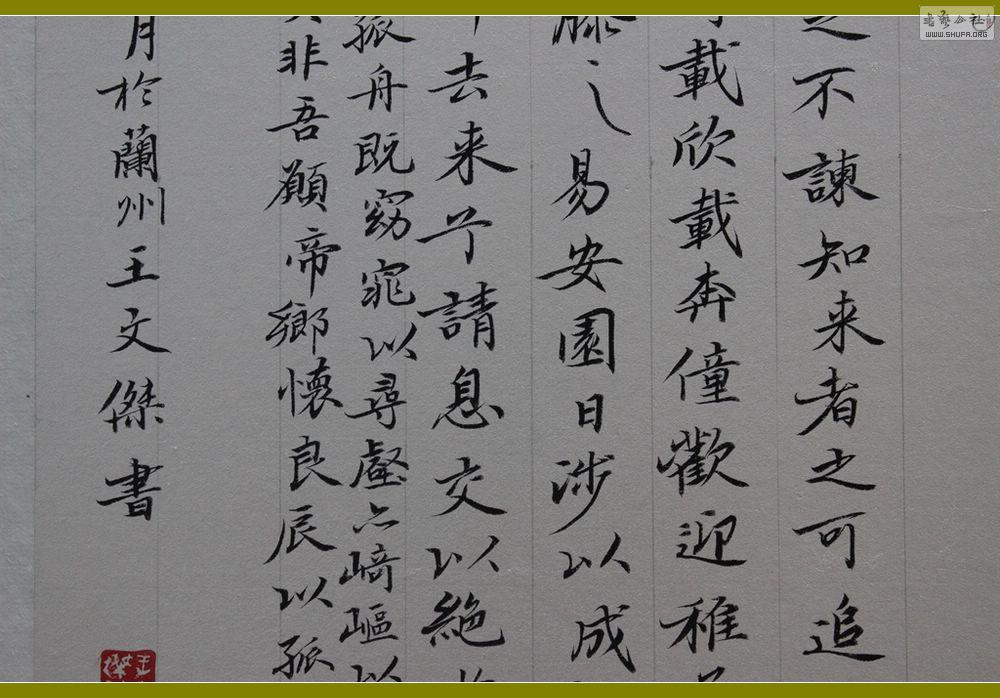 之不諫知来者之可追
載欣載奔僮歡迎稚
膝之易安園日涉以成
去来兮請息交以絶
孤舟既窈窕以尋壑亦崎嶇以
非吾願帝鄉懷良辰以孤
月於蘭州王文傑書
书艺公社
WWW.SHUFA.ORG